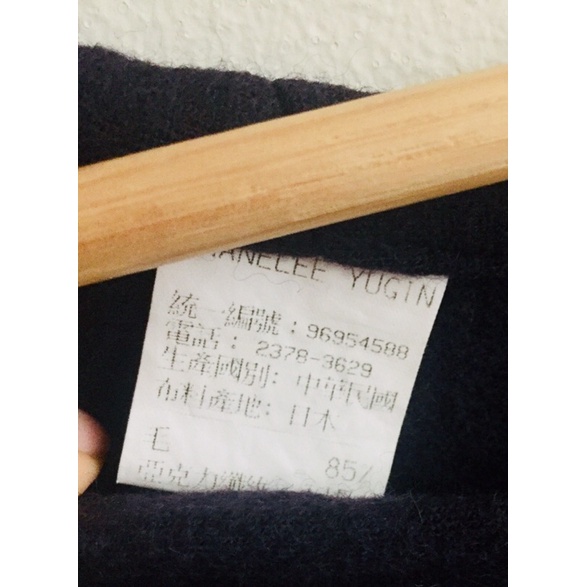 YUGIN
統一編號：96954588
電話：2378-3629
生產國別：中華民國
布料產地：日本
毛 85%
亞克力纖維